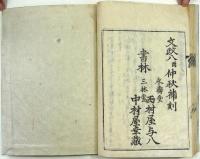 文政八酉仲秋補刻
永壽堂
西村屋与八
書林
三林堂
中村屋幸蔵